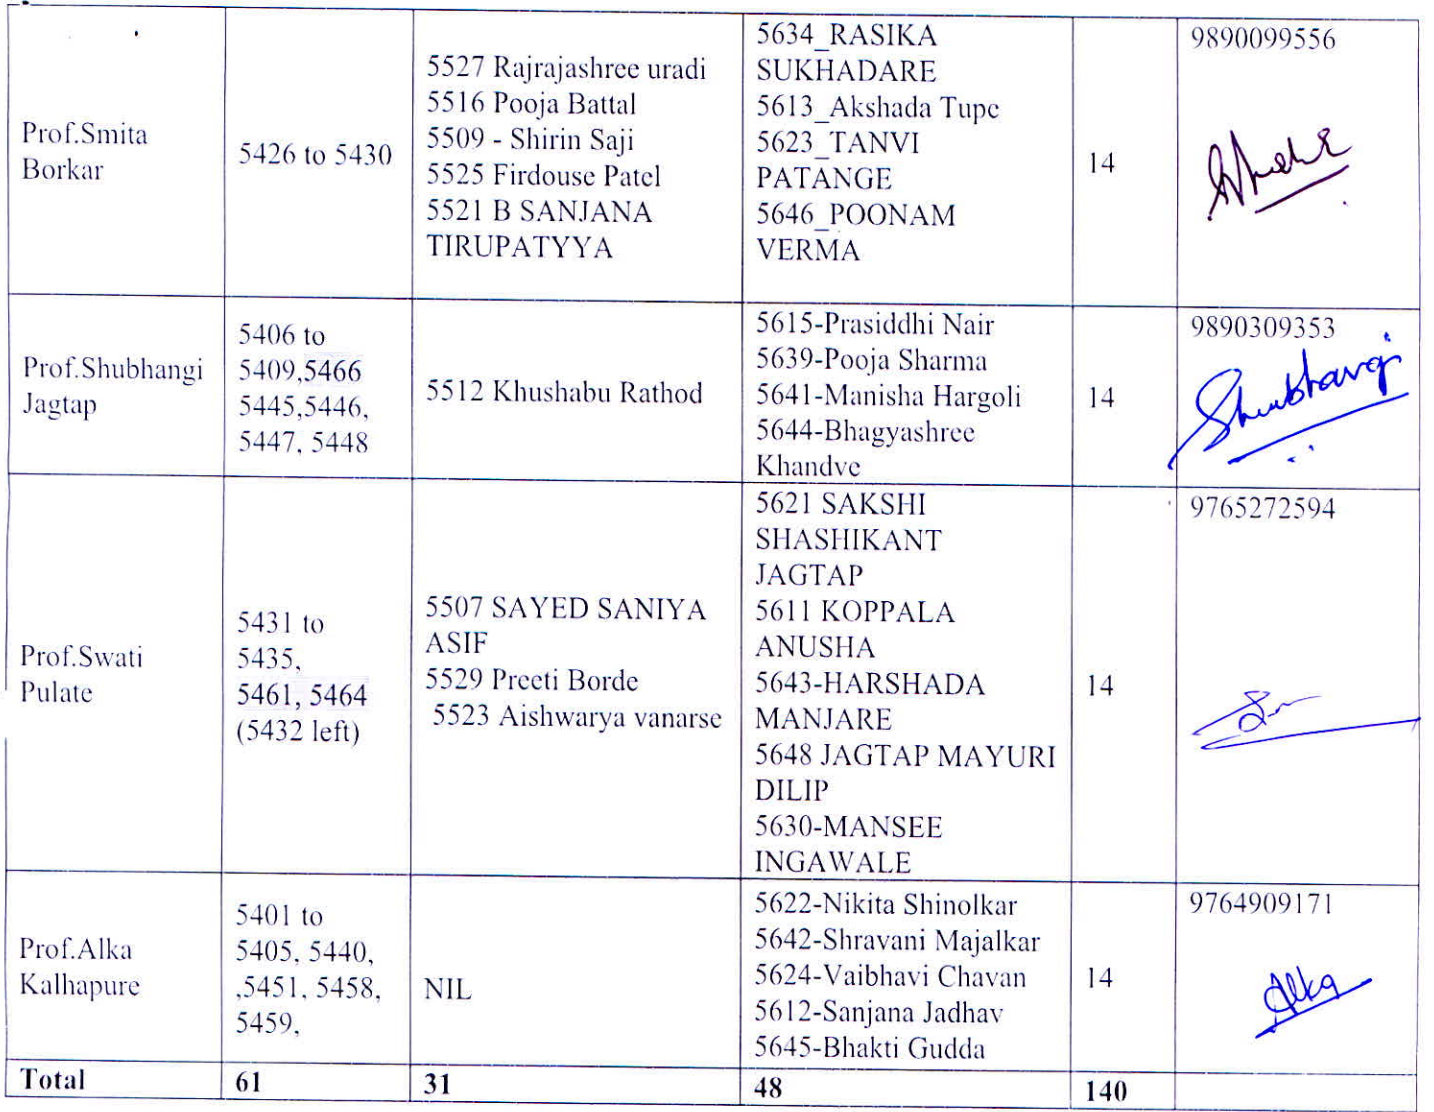 Prof.Smita
Borkar
5426 to 5430
5527 Rajrajashree uradi
5516 Pooja Battal
5509 - Shirin Saji
5525 Firdouse Patel
5521 B SANJANA
TIRUPATYYA
5634_RASIKA
SUKHADARE
5613_Akshada Tupe
5623_TANVI
PATANGE
5646_POONAM
VERMA
14
9890099556
Prof.Shubhangi
Jagtap
5406 to
5409,5466
5445,5446,
5447, 5448
5512 Khushabu Rathod
5615-Prasiddhi Nair
5639-Pooja Sharma
5641-Manisha Hargoli
5644-Bhagyashree
Khandve
14
9890309353
Shubhangi
Prof.Swati
Pulate
5431 to
5435,
5461, 5464
(5432 left)
5507 SAYED SANIYA
ASIF
5529 Preeti Borde
5523 Aishwarya vanarse
5621 SAKSHI
SHASHIKANT
JAGTAP
5611 KOPPALA
ANUSHA
5643-HARSHADA
MANJARE
5648 JAGTAP MAYURI
DILIP
5630-MANSEE
INGAWALE
14
9765272594
Prof.Alka
Kalhapure
5401 to
5405, 5440,
,5451, 5458,
5459,
NIL
5622-Nikita Shinolkar
5642-Shravani Majalkar
5624-Vaibhavi Chavan
5612-Sanjana Jadhav
5645-Bhakti Gudda
14
9764909171
Alka
Total
61
31
48
140